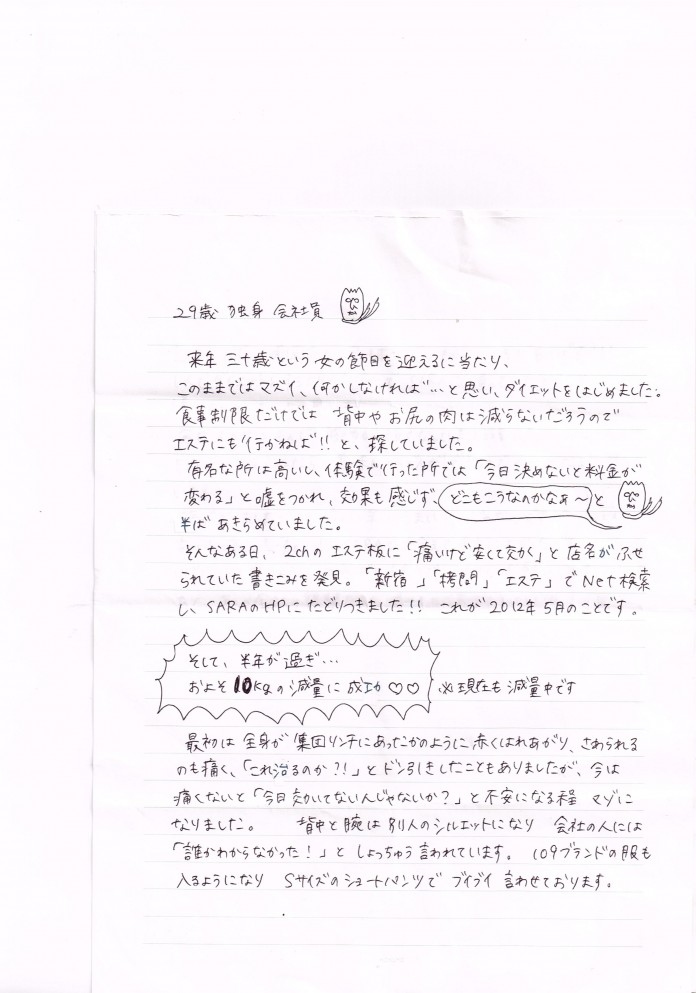 29歳 独身 会社員
来年 三十歳という女の節目を迎えるに当たり、
このままではマズイ、何かしなければ…と思い、ダイエットをはじめました。
食事制限だけでは 背中やお尻の肉は減らないだろうので
エステにも行かねば!! と、探していました。
有名な所は高いし、体験で行った所では「今日決めないと料金が
変わる」と嘘をつかれ、効果も感じず、どこもこうなのかなぁ〜と
半ばあきらめていました。
そんなある日、2chのエステ板に「痛いけど安くて効く」と店名がふせ
られていた書きこみを発見。「新宿」「拷問」「エステ」でNet検索
し、SARAのHPにたどりつきました!! これが2012年5月のことです。
そして、半年が過ぎ…
およそ10kgの減量に成功♡♡ ※現在も減量中です
最初は全身が集団リンチにあったかのように赤くはれあがり、さわられる
のも痛く、「これ治るのか?!」とドン引きしたこともありましたが、今は
痛くないと「今日効いてないんじゃないか?」と不安になる程 マゾに
なりました。 背中と腕は別人のシルエットになり 会社の人には
「誰かわからなかった!」と しょっちゅう言われています。 109ブランドの服も
入るようになり Sサイズのショートパンツで ブイブイ言わせております。